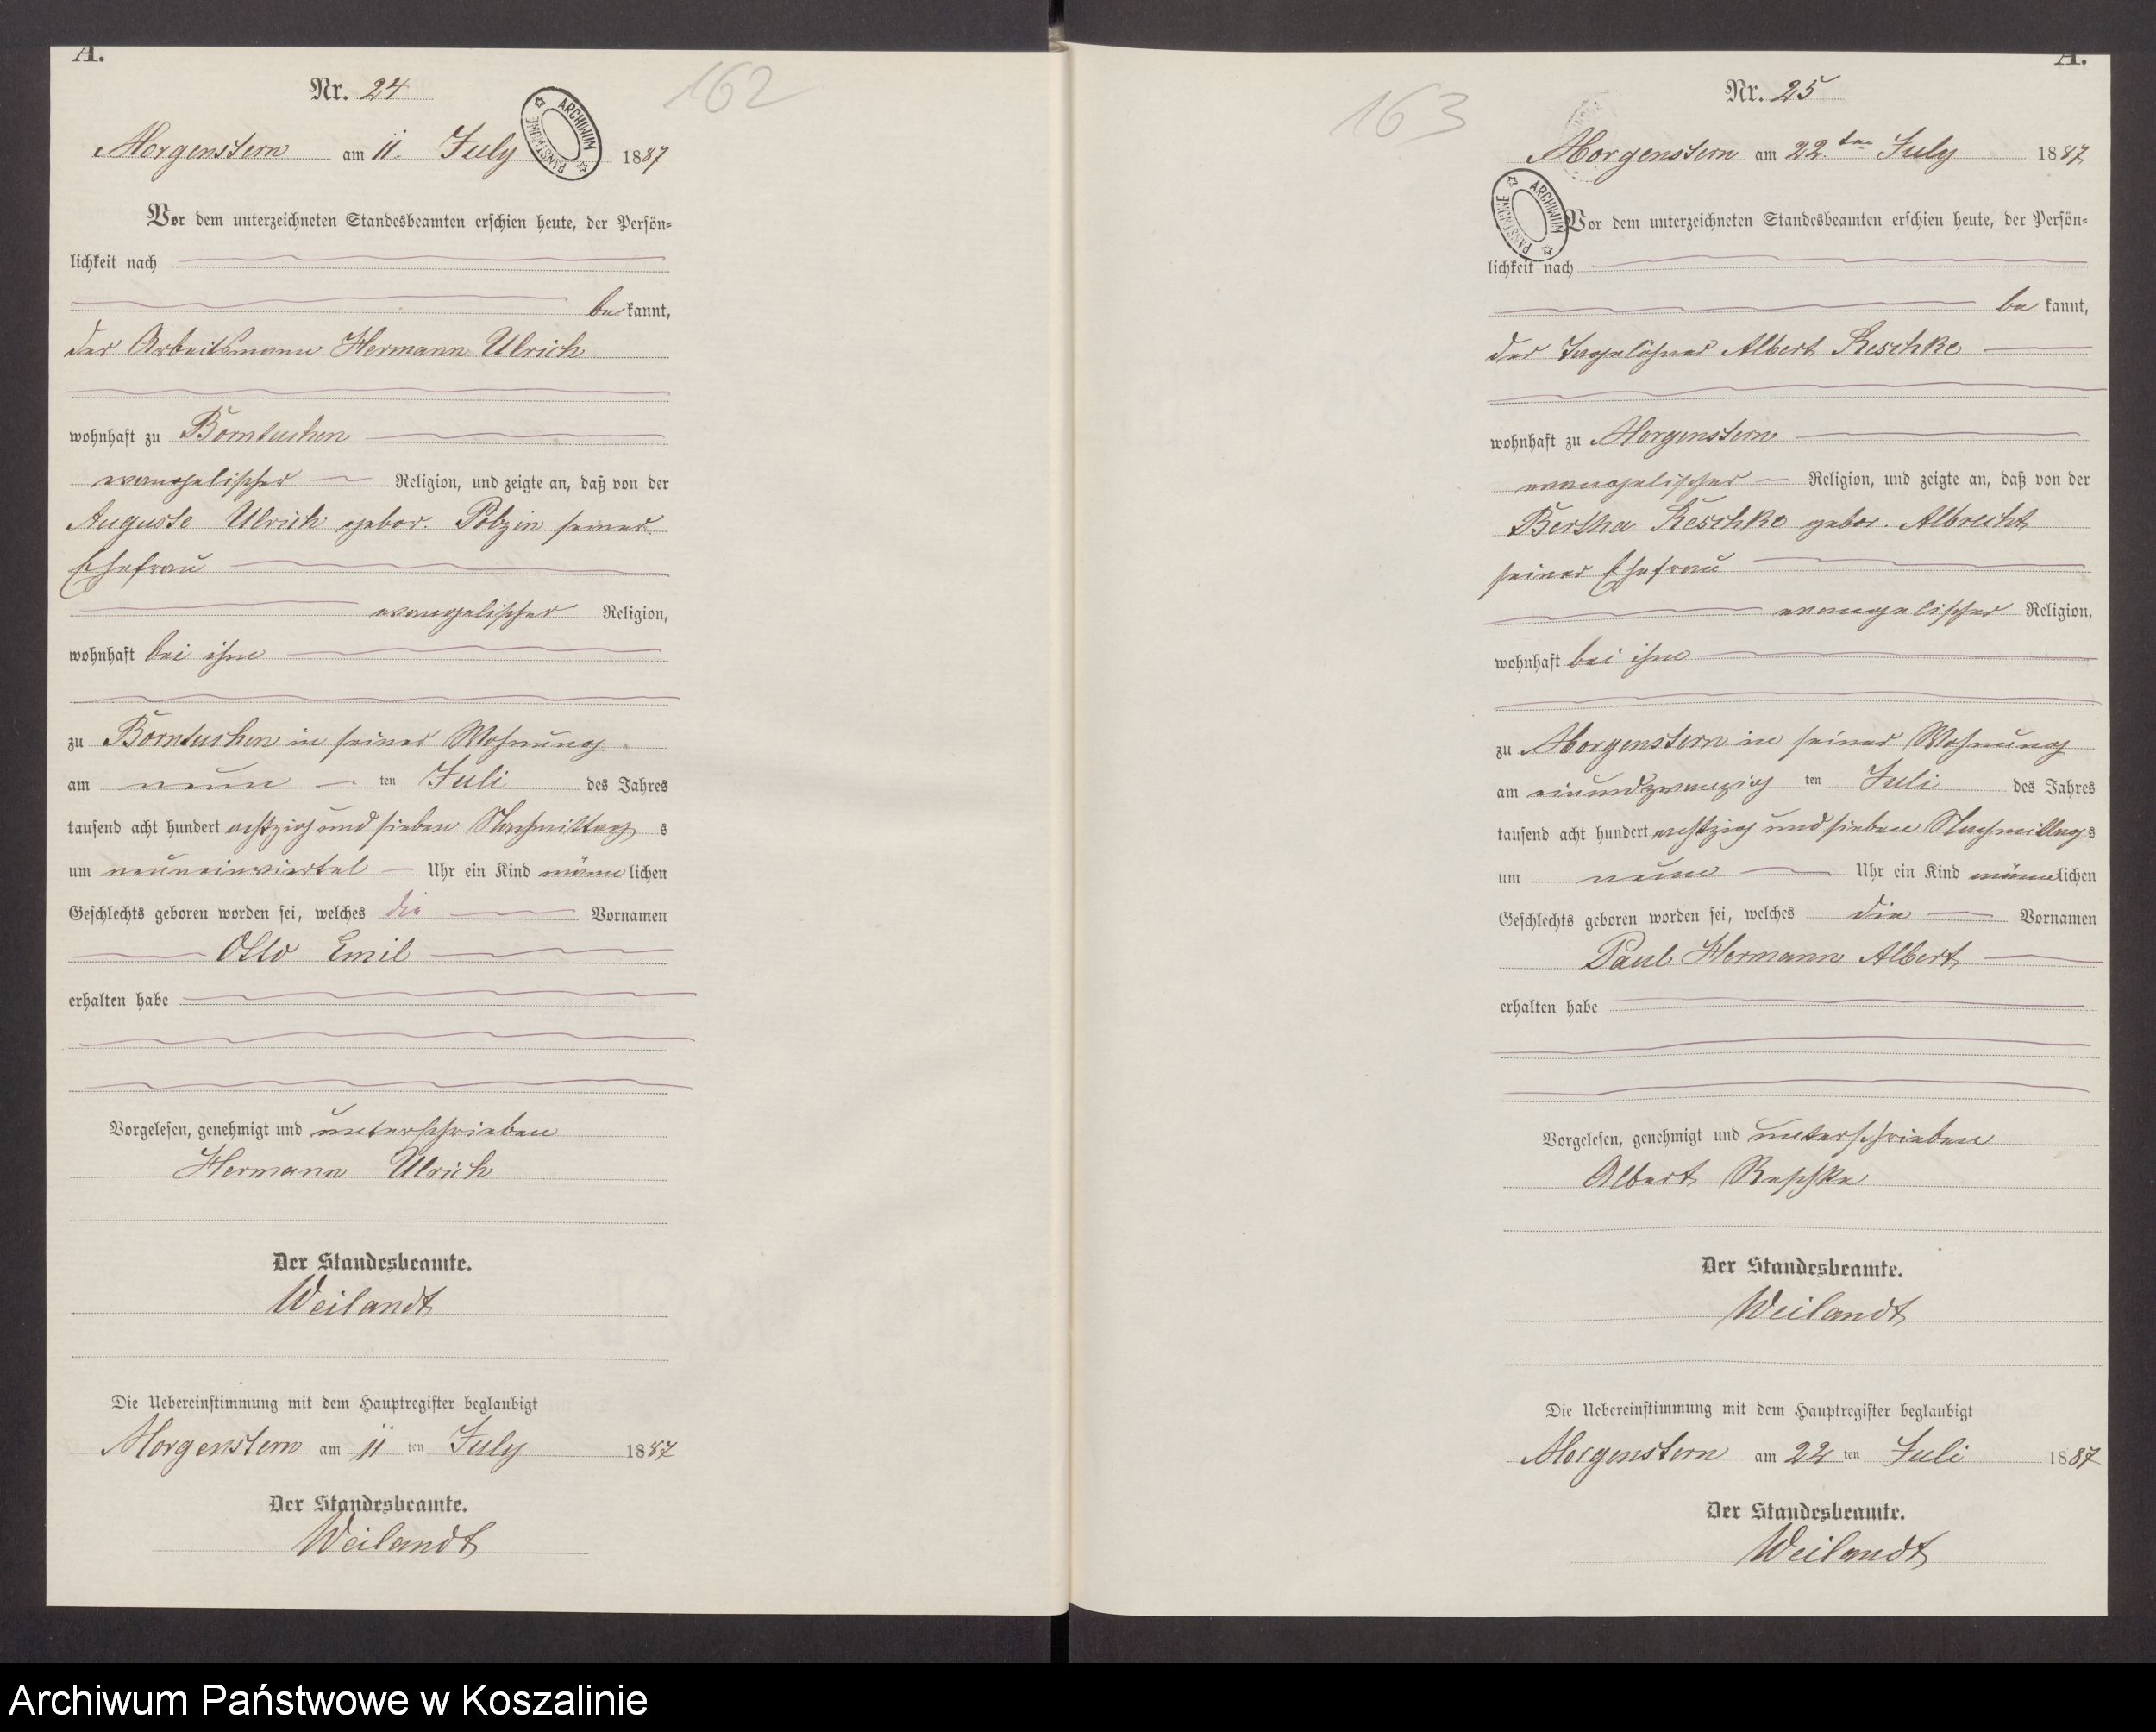 A.
Nr. 24
162
ARCHIWUM PAŃSTWOWE
Morgenstern am 11. July 1887
Vor dem unterzeichneten Standesbeamten erschien heute, der Persön-
lichkeit nach
bekannt,
der Arbeitsmann Hermann Ulrich
wohnhaft zu Borntuchen
evangelischer Religion, und zeigte an, daß von der
Auguste Ulrich gebor. Polzin seiner
Ehefrau
evangelischer Religion,
wohnhaft bei ihm
zu Borntuchen in seiner Wohnung
am neun ten Juli des Jahres
tausend acht hundert achtzig und sieben Nachmittag s
um neuneinviertel Uhr ein Kind männlichen
Geschlechts geboren worden sei, welches die Vornamen
Otto Emil
erhalten habe
Vorgelesen, genehmigt und unterschrieben
Hermann Ulrich
Der Standesbeamte.
Weilandt
Die Uebereinstimmung mit dem Hauptregister beglaubigt
Morgenstern am 11 ten July 1887
Der Standesbeamte.
Weilandt
A.
Nr. 25
163
Morgenstern am 22.ten July 1887
ARCHIWUM PAŃSTWOWE
Vor dem unterzeichneten Standesbeamten erschien heute, der Persön-
lichkeit nach
bekannt,
der Tagelöhner Albert Reschke
wohnhaft zu Morgenstern
evangelischer Religion, und zeigte an, daß von der
Bertha Reschke gebor. Albrecht
seiner Ehefrau
evangelischer Religion,
wohnhaft bei ihm
zu Morgenstern in seiner Wohnung
am einundzwanzig ten Juli des Jahres
tausend acht hundert achtzig und sieben Nachmittag s
um neun Uhr ein Kind männlichen
Geschlechts geboren worden sei, welches die Vornamen
Paul Hermann Albert
erhalten habe
Vorgelesen, genehmigt und unterschrieben
Albert Reschke
Der Standesbeamte.
Weilandt
Die Uebereinstimmung mit dem Hauptregister beglaubigt
Morgenstern am 22 ten Juli 1887
Der Standesbeamte.
Weilandt
Archiwum Państwowe w Koszalinie